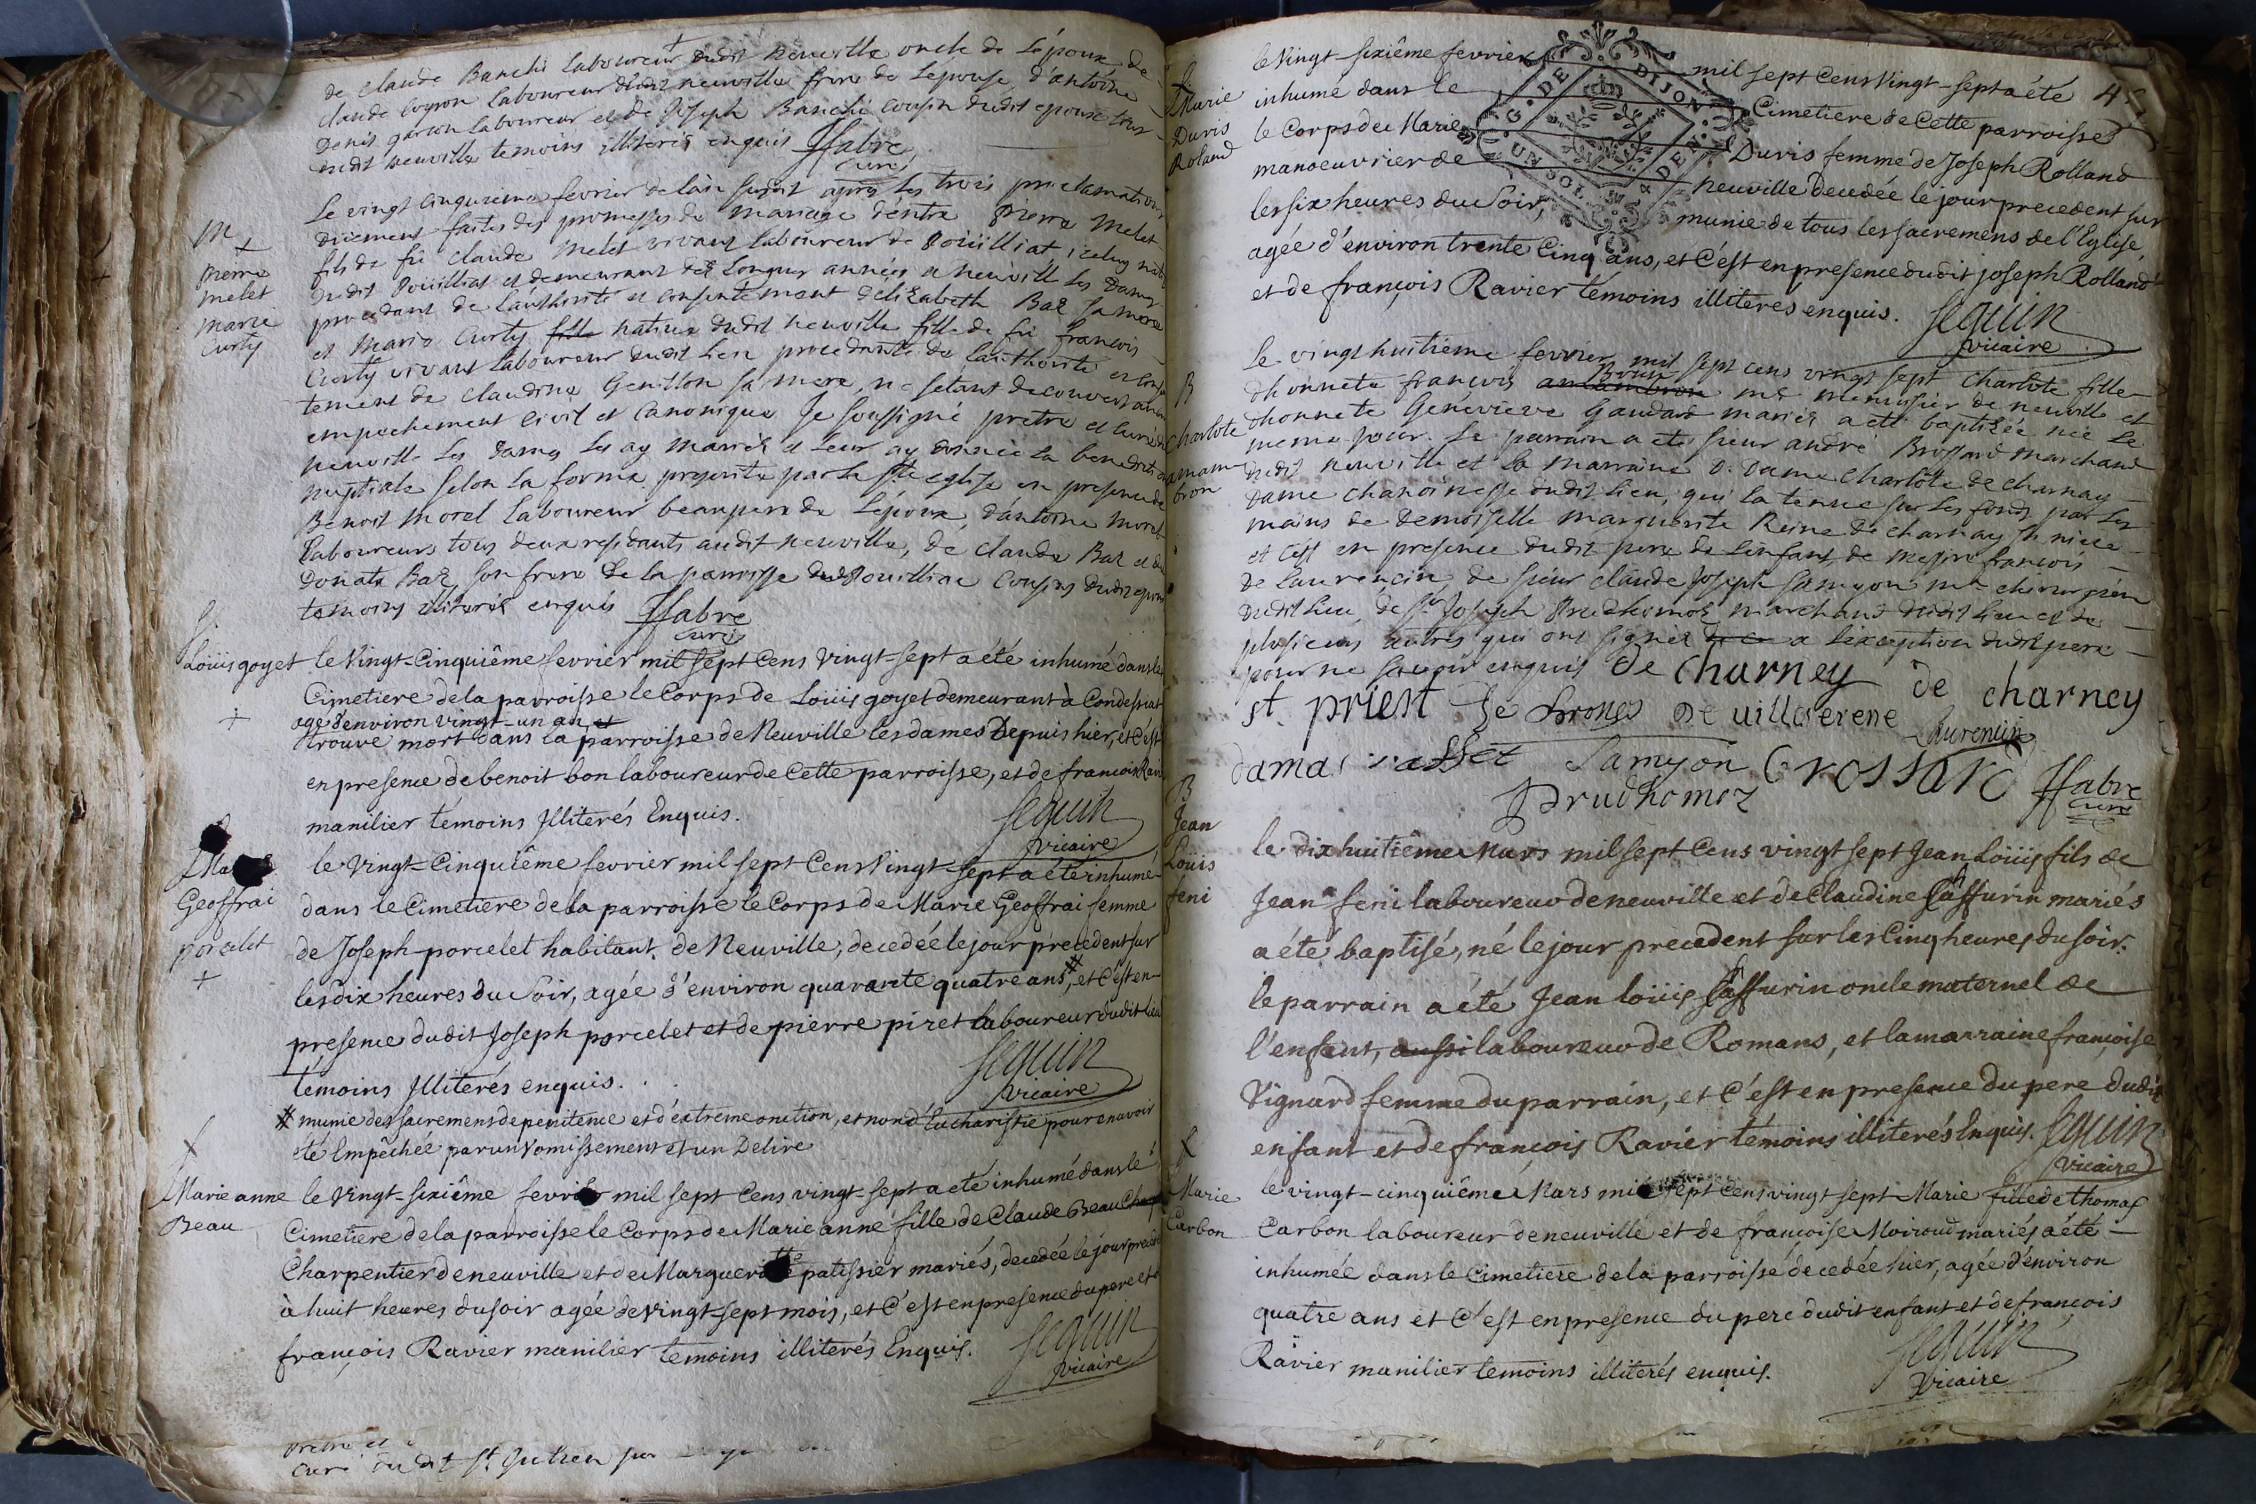 de claude Banchi laboureur dudit neuville oncle de l'époux de
claude Goyron laboureur dudit neuville frere de l'epouse, d'antoine
Denis garcon laboureur et de Joseph Banchi cousin dudit epoux tous
dudit neuville temoins illiterés enquis ffabre
curé
M
+
pierre
melet
marie
Curty
Le vingt cinquieme fevrier de l'an susdit après les trois proclamations
duement faites des promesses de mariage d'entre pierre Melet
fils de fû claude Melet vivant laboureur de Poüilliat, iceluy natif
dudit Poüilliat et demeurant dez longues années a neuville les Dames
procedant de l'authorité et consentement d'elizabeth Baz sa mere
et Marie Curty fille native dudit neuville fille de fû francois
Curty vivant laboureur dudit lieu procedante de l'authorité et consen
tement de claudine Genillon sa mere, ne s'etant decouvert aucun
empechement civil et canonique Je soussigné prêtre et curé de
neuville les dames les ay mariés et leur ay donnée la benediction
nuptiale selon la forme prescrite par la ste eglise en presence de
Benoit Morel laboureur beaupere de l'époux, d'antoine Morel
laboureurs tous deux residants audit neuville, de claude Baz et de
Donate Baz son frere de la parroisse de Pouilliac cousins dudit epoux
temoins illiterés enquis ffabre
curé
S.
Loüis goyet
+
le Vingt-Cinquiême fevrier mil sept Cens Vingt-sept a été inhumé dans le
Cimetiere de la parroisse le Corps de Loüis goyet demeurant à Condessiat
agé d'environ vingt-un an et
trouvé mort dans la parroisse de Neuville les dames Depuis hier, et c'est
en presence de benoit bon laboureur de Cette parroisse, et de francois Ravi
manilier témoins Illiterés Enquis.
Seguin
vicaire
S Ma
Geoffrai
porcelet
+
le Vingt-Cinquiême fevrier mil sept Cens Vingt-sept a été inhumé
dans le Cimetiere de la parroisse le Corps de Marie Geoffrai femme
de Joseph porcelet habitant de Neuville, decedée le jour precedent sur
les dix heures du soir, agée d'environ quarante quatre ans #, et c'est en
presence dudit Joseph porcelet et de pierre piret laboureur dudit lieu
témoins Illiterés enquis.
Seguin
vicaire
# munie des sacremens de penitence et d'extreme onction, et non d'Eucharistie pour en avoir
été Empêchée par un vomissement et un Delire
S
Marie anne
Beau
le Vingt-sixiême fevrier mil sept Cens vingt-sept a été inhumé dans le
Cimetiere de la parroisse le Corps de Marie anne fille de Claude Beau
Charpentier de neuville et de Marguerite patissier mariés, decedée le jour precedent
à huit heures du soir agée de vingt-sept mois, et c'est en presence du pere et de
françois Ravier manilier temoins illiterés Enquis.
Seguin
vicaire
prêtre et
curé du dit St Julien
S
Marie
Duris
Roland
le Vingt-sixiême fevrier mil sept Cens Vingt-sept a été
inhumé dans le Cimetiere de Cette parroisse
le Corps de Marie Duris femme de Joseph Rolland
manoeuvrier de neuville decedée le jour precedent sur
les six heures du Soir, munie de tous les sacremens de l'Eglise,
agée d'environ trente Cinq ans, et c'est en presence dudit joseph Rolland
et de françois Ravier témoins illiteres enquis.
Seguin
vicaire
G. DE DIJON
UN SOL
B
Charlote
amam
bron
Le vingt huitieme fevrier mil sept cens vingt sept Charlote fille
d'honnete françois mre menuisier de neuville et
d'honnete Geneviéve Gaudard mariés a eté baptisée née le
meme jour. Le parrain a eté sieur andré Brossard marchand
dudit neuville et la marraine D. Dame Charlote de charnay
dame chanoinesse dudit lieu, qui la tenue sur les fonds par les
mains de demoiselle marguerite Reine de charnay sa niece
et c'est en presence dudit pere de l'enfant, de messire francois
de laurencin, de sieur claude Joseph Samyon mre chirurgien
dudit lieu, de sr Joseph Prudhomoz marchand dudit lieu et de
plusieurs autres qui ont signéz a l'exception dudit pere
pour ne savoir enquis de charney de charney
st. priest de villeserene Laurencin
damas Samyon Brossard ffabre
curé
Prudhomoz
B
Jean
Loüis
feni
le dix huitiême Mars mil sept Cens vingt sept Jean Loüis fils de
Jean feni laboureur de neuville et de Claudine Saffurin mariés
a été baptisé, né le jour precedent sur les Cinq heures du soir.
le parrain a été Jean loüis Saffurin oncle maternel de
l'enfant, aussi laboureur de Romans, et la marraine françoise
Vignard femme du parrain, et c'est en presence du pere dudit
enfant et de françois Ravier témoins illiterés Enquis. Seguin
vicaire
S
Marie
Carbon
le vingt-cinquiême Mars mil sept Cens vingt sept Marie fille de thomas
Carbon laboureur de neuville et de françoise Moiroud mariés a été
inhumée dans le Cimetiere de la parroisse décedée hier, agée d'environ
quatre ans et c'est en presence du pere dudit enfant et de françois
Ravier manilier temoins illiterés enquis.
Seguin
Vicaire